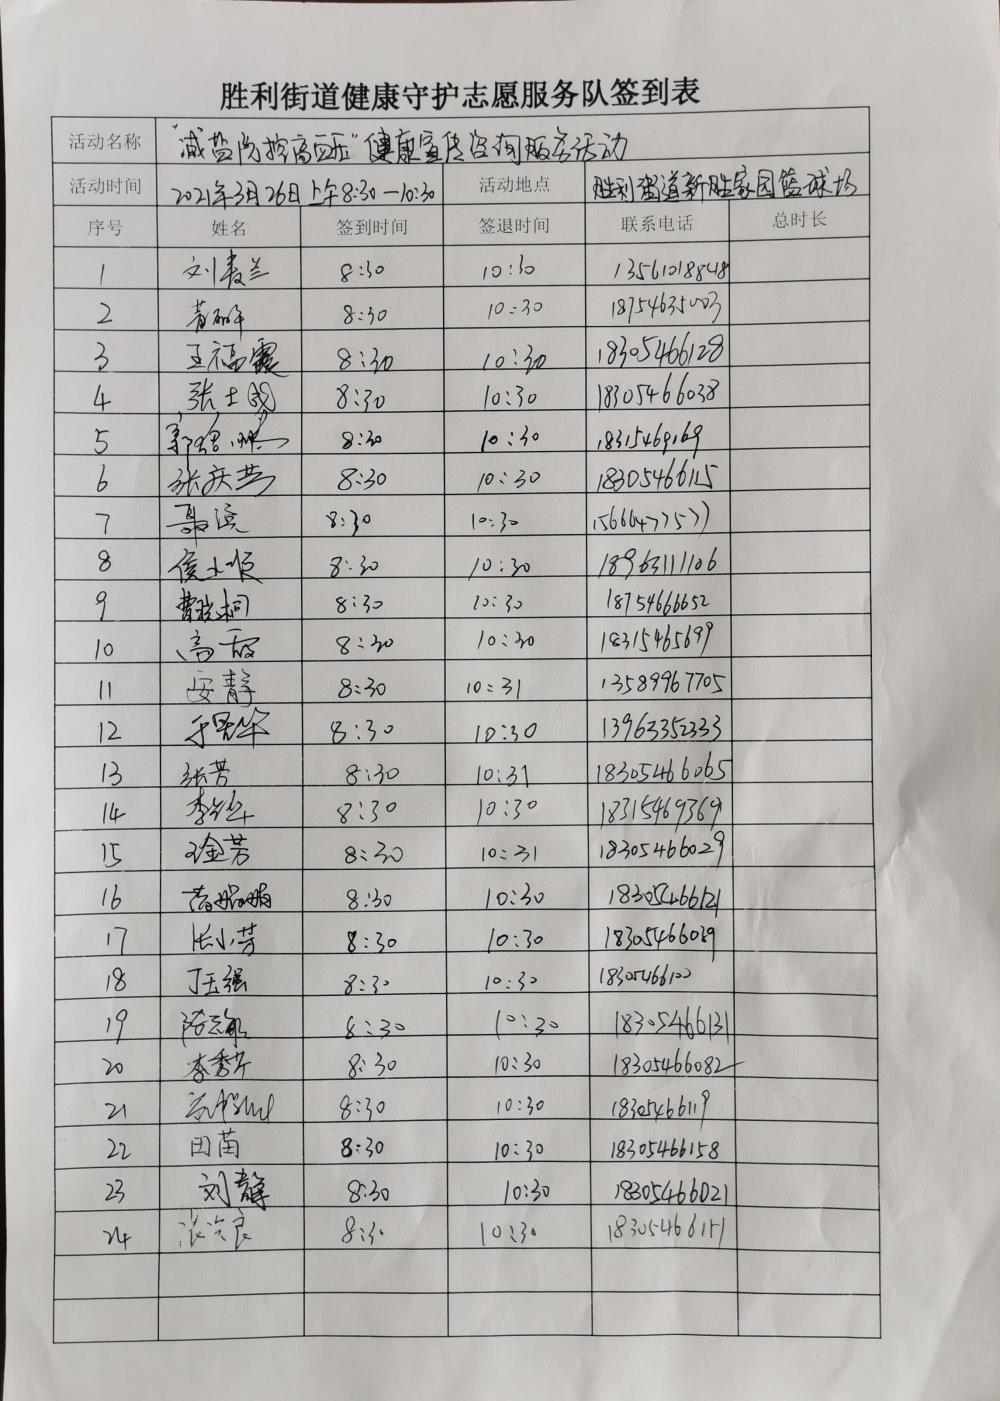 胜利街道健康守护志愿服务队签到表
活动名称 "减盐防控高血压"健康宣传咨询服务活动
活动时间 2021年3月26日上午8:30—10:30 活动地点 胜利街道新胜家园篮球场
序号 姓名 签到时间 签退时间 联系电话 总时长
1 刘春兰 8:30 10:30 13561018848
2 8:30 10:30 18754635003
3 王福霞 8:30 10:30 18305466128
4 张士国 8:30 10:30 18305466038
5 8:30 10:30 18315469169
6 张庆芸 8:30 10:30 18305466115
7 聂滨 8:30 10:30 15666477577
8 侯小顺 8:30 10:30 18963111106
9 曹晓桐 8:30 10:30 18754666652
10 高霞 8:30 10:30 18315465699
11 安静 8:30 10:31 13589967705
12 8:30 10:30 13963352333
13 张芳 8:30 10:31 18305466065
14 8:30 10:30 18315469369
15 王金芳 8:30 10:31 18305466029
16 8:30 10:30 18305466121
17 张小芳 8:30 10:30 18305466039
18 丁玉强 8:30 10:30 18305466100
19 8:30 10:30 18305466131
20 李秀芹 8:30 10:30 18305466082
21 8:30 10:30 18305466119
22 田苗 8:30 10:30 18305466158
23 刘静 8:30 10:30 18305466021
24 8:30 10:30 18305466151